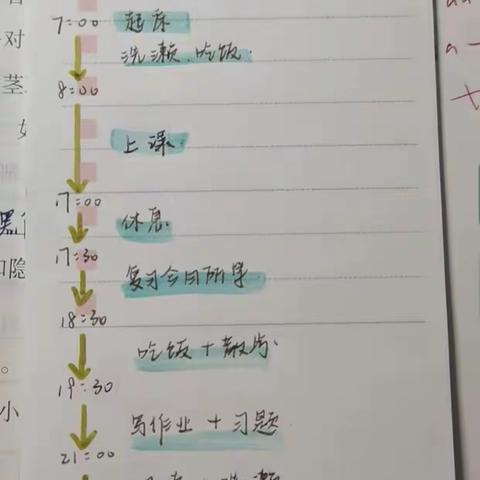 7:00 起床
洗漱、吃饭.
8:00
上课.
17:00
休息
17:30
复习今日所学
18:30
吃饭+散步.
19:30
写作业+习题
21:00